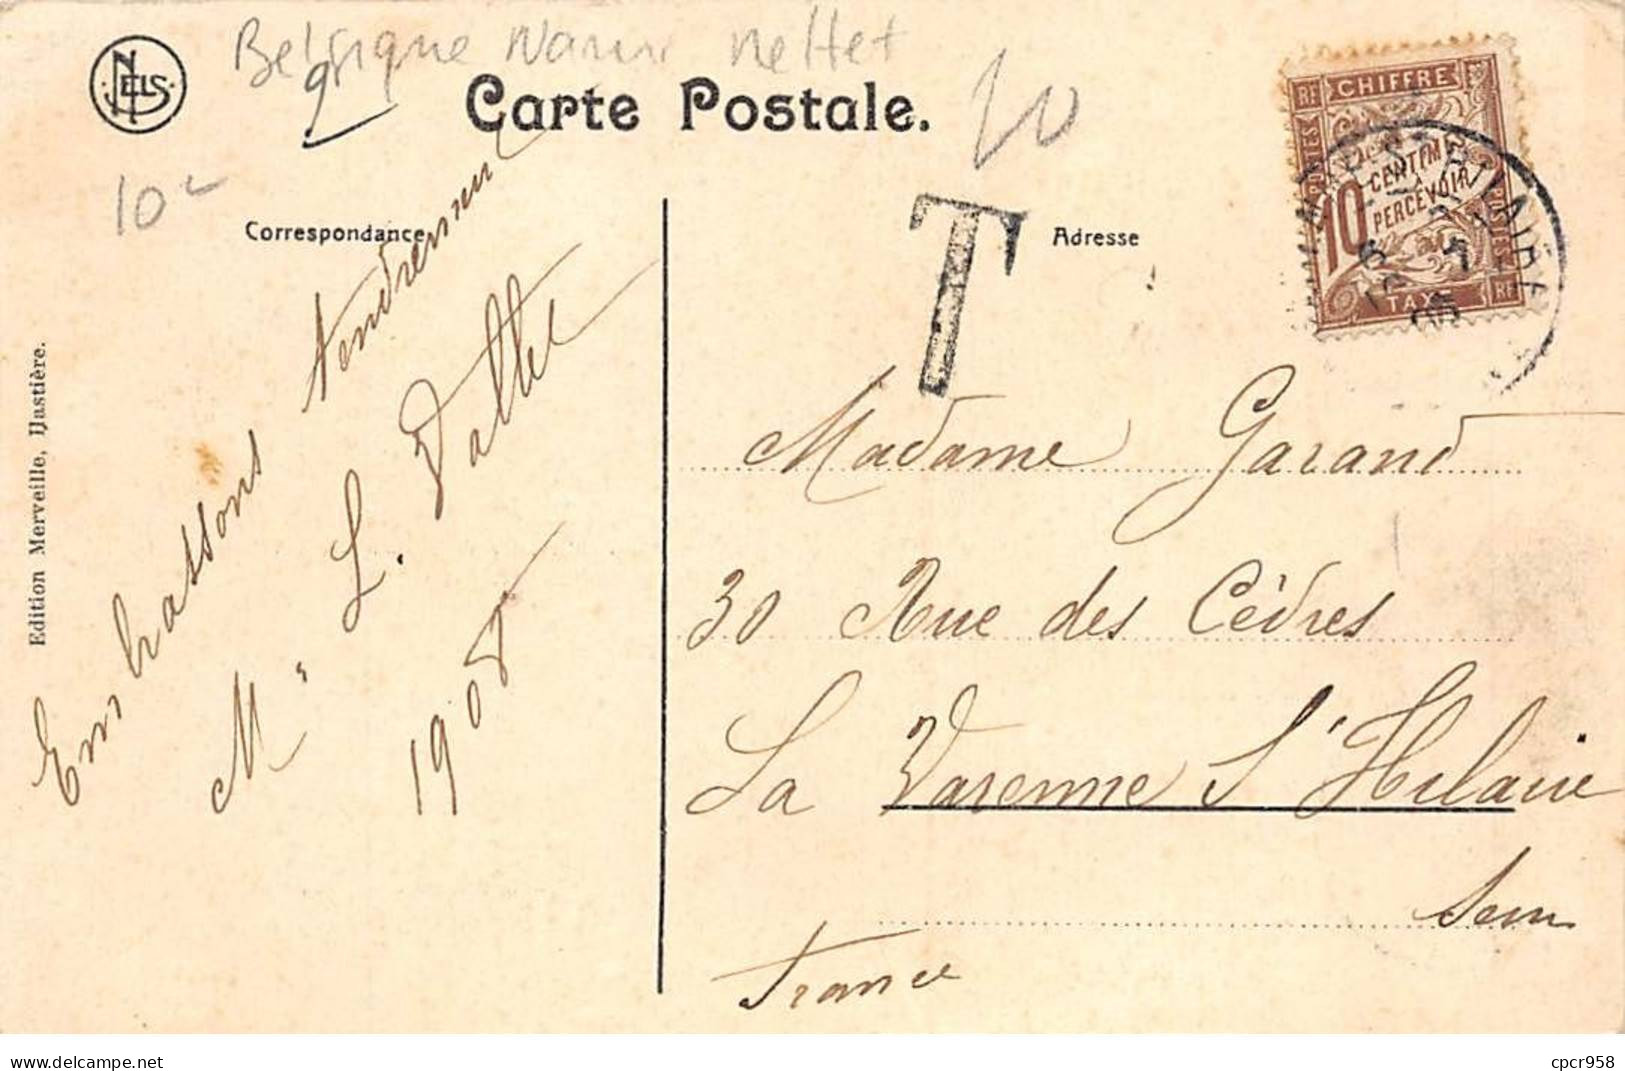 Belgique Namur Mettet
NELS
Carte Postale.
10
10
T
Correspondance
Adresse
RF CHIFFRE
POSTES
10 CENTIMES
A
PERCEVOIR
POSTES
TAXE RF
Edition Merveille, Hastière.
Embrassons tendrement
M L. Vallée
1908
Madame Garand
30 Rue des Cèdres
La Varenne St Hilaire
Seine
France
cpcr958